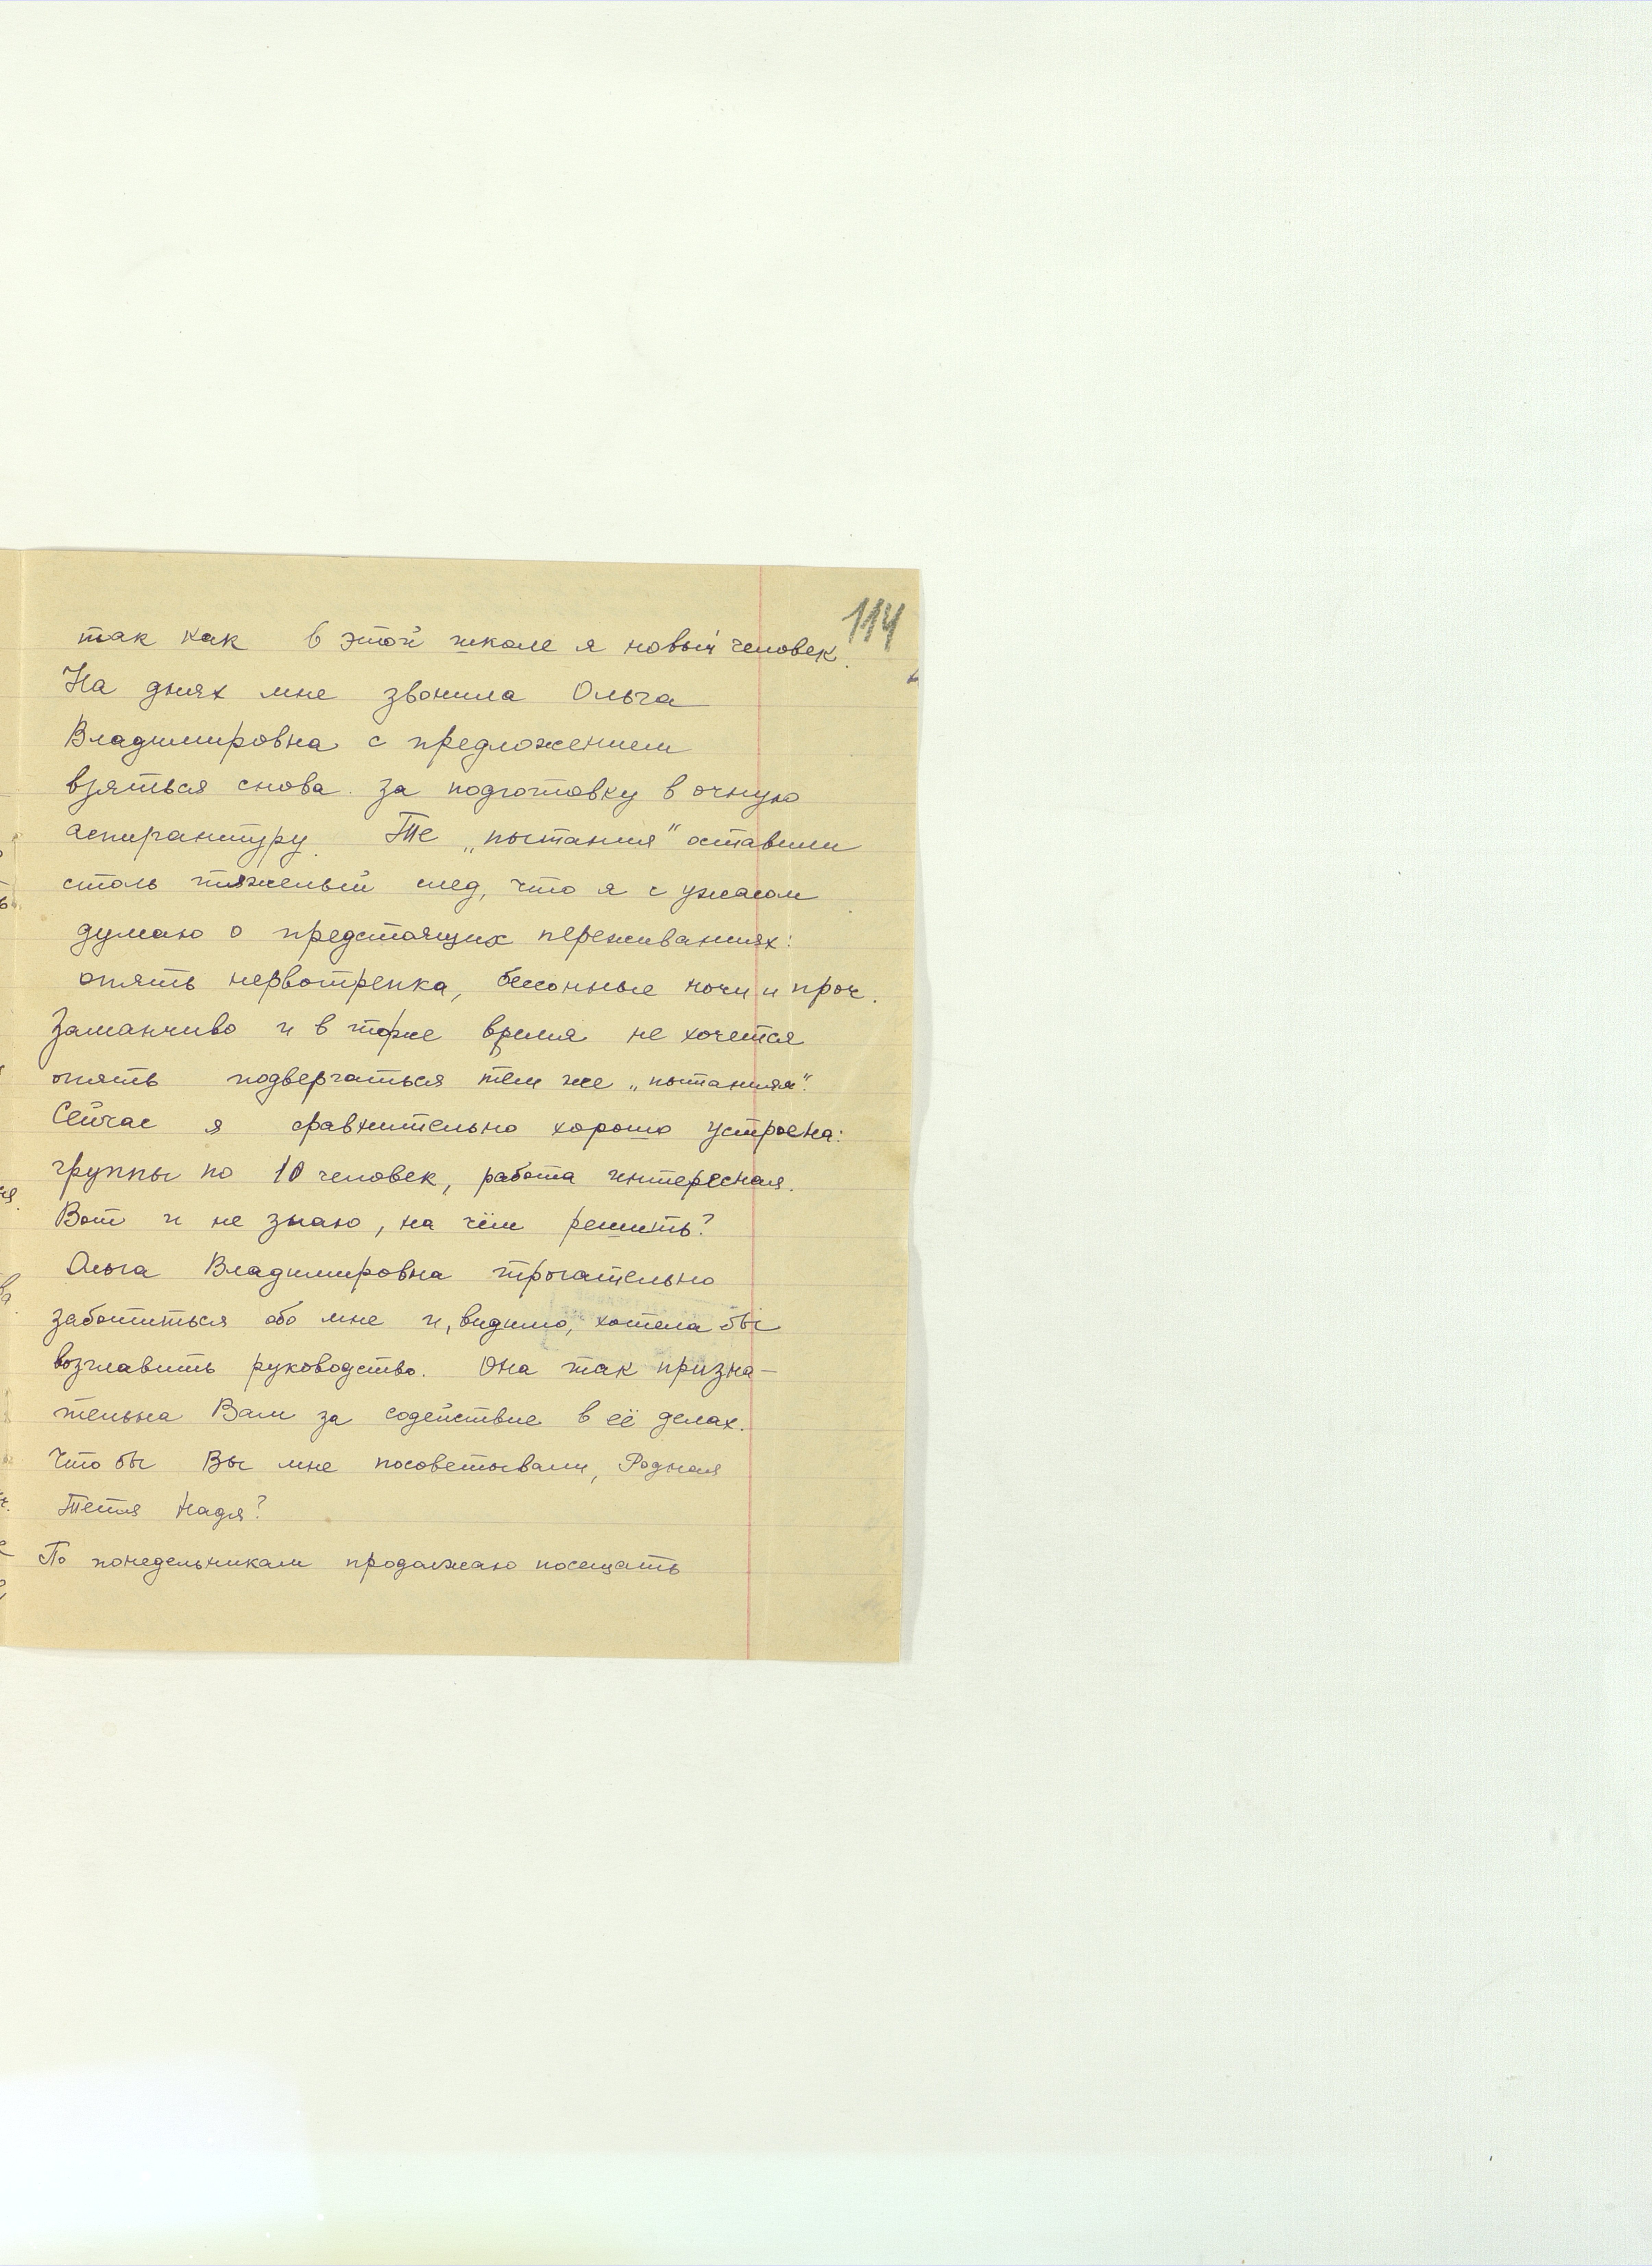 114
так как в этой школе я новый человек.
На днях мне звонила Ольга
Владимировна с предложением
взяться снова за подготовку в очную
аспирантуру. Те „пытания" оставили
столь тяжелый след, что я с ужасом
думаю о предстоящих переживаниях:
опять нервотрепка, бессонные ночи и проч.
Заманчиво и в тоже время не хочется
опять подвергаться тем же „пытаниям".
Сейчас я сравнительно хорошо устроена:
группы по 10 человек, работа интересная.
Вот и не знаю, на чём решить?
Ольга Владимировна трогательно
заботиться обо мне и, видимо, хотела бы
возглавить руководство. Она так призна-
тельна Вам за содействие в её делах.
Что бы Вы мне посоветывали, Родная
Тетя Надя?
По понедельникам продолжаю посещать